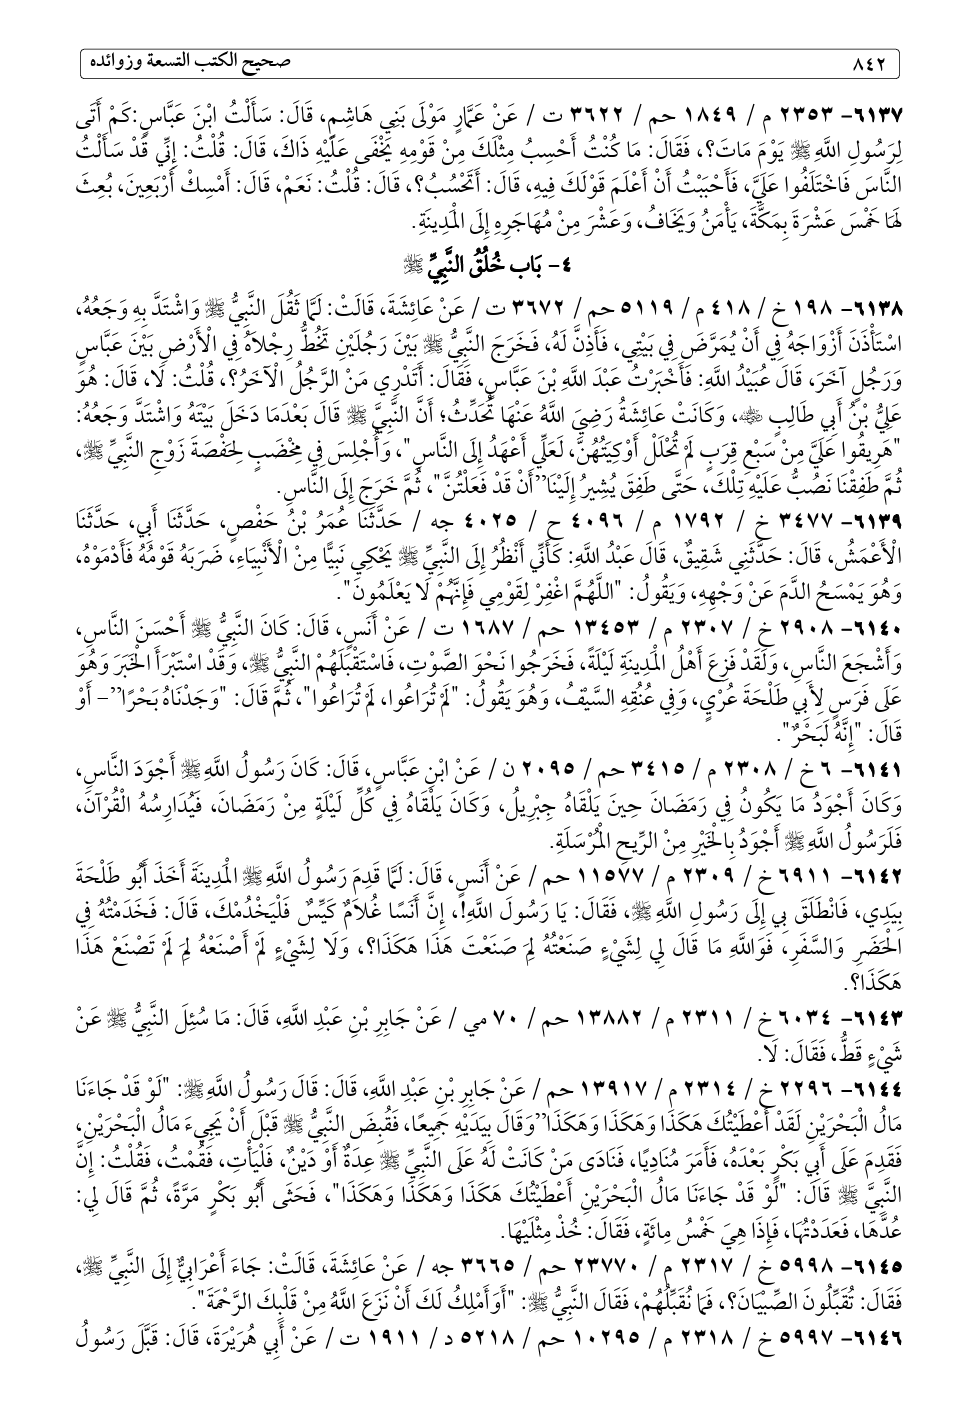 ٨٤٢ صحيح الكتب التسعة وزوائده
٦١٣٧- ٢٣٥٣ م / ١٨٤٩ حم / ٣٦٢٢ ت / عَنْ عَمَّارٍ مَوْلَى بَنِي هَاشِمٍ، قَالَ: سَأَلْتُ ابْنَ عَبَّاسٍ:كَمْ أَتَى
لِرَسُولِ اللَّهِ ﷺ يَوْمَ مَاتَ؟، فَقَالَ: مَا كُنْتُ أَحْسِبُ مِثْلَكَ مِنْ قَوْمِهِ يَخْفَى عَلَيْهِ ذَاكَ، قَالَ: قُلْتُ: إِنِّي قَدْ سَأَلْتُ
النَّاسَ فَاخْتَلَفُوا عَلَيَّ، فَأَحْبَبْتُ أَنْ أَعْلَمَ قَوْلَكَ فِيهِ، قَالَ: أَتَحْسُبُ؟، قَالَ: قُلْتُ: نَعَمْ، قَالَ: أَمْسِكْ أَرْبَعِينَ، بُعِثَ
لَهَا خَمْسَ عَشْرَةَ بِمَكَّةَ، يَأْمَنُ وَيَخَافُ، وَعَشْرَ مِنْ مُهَاجَرِهِ إِلَى الْمَدِينَةِ.
٤- بَاب خُلُقُ النَّبِيِّ ﷺ
٦١٣٨- ١٩٨ خ / ٤١٨ م / ٥١١٩ حم / ٣٦٧٢ ت / عَنْ عَائِشَةَ، قَالَتْ: لَمَّا ثَقُلَ النَّبِيُّ ﷺ وَاشْتَدَّ بِهِ وَجَعُهُ،
اسْتَأْذَنَ أَزْوَاجَهُ فِي أَنْ يُمَرَّضَ فِي بَيْتِي، فَأَذِنَّ لَهُ، فَخَرَجَ النَّبِيُّ ﷺ بَيْنَ رَجُلَيْنِ تَخُطُّ رِجْلَاهُ فِي الْأَرْضِ بَيْنَ عَبَّاسٍ
وَرَجُلٍ آخَرَ، قَالَ عُبَيْدُ اللَّهِ: فَأَخْبَرْتُ عَبْدَ اللَّهِ بْنَ عَبَّاسٍ، فَقَالَ: أَتَدْرِي مَنْ الرَّجُلُ الْآخَرُ؟، قُلْتُ: لَا، قَالَ: هُوَ
عَلِيُّ بْنُ أَبِي طَالِبٍ ﷺ، وَكَانَتْ عَائِشَةُ رَضِيَ اللَّهُ عَنْهَا تُحَدِّثُ؛ أَنَّ النَّبِيَّ ﷺ قَالَ بَعْدَمَا دَخَلَ بَيْتَهُ وَاشْتَدَّ وَجَعُهُ:
"هَرِيقُوا عَلَيَّ مِنْ سَبْعِ قِرَبٍ لَمْ تُحْلَلْ أَوْكِيَتُهُنَّ، لَعَلِّي أَعْهَدُ إِلَى النَّاسِ"، وَأُجْلِسَ فِي مِخْضَبٍ لِحَفْصَةَ زَوْجِ النَّبِيِّ ﷺ،
ثُمَّ طَفِقْنَا نَصُبُّ عَلَيْهِ تِلْكَ، حَتَّى طَفِقَ يُشِيرُ إِلَيْنَا"أَنْ قَدْ فَعَلْتُنَّ"، ثُمَّ خَرَجَ إِلَى النَّاسِ.
٦١٣٩- ٣٤٧٧ خ / ١٧٩٢ م / ٤٠٩٦ ح / ٤٠٢٥ جه / حَدَّثَنَا عُمَرُ بْنُ حَفْصٍ، حَدَّثَنَا أَبِي، حَدَّثَنَا
الْأَعْمَشُ، قَالَ: حَدَّثَنِي شَقِيقٌ، قَالَ عَبْدُ اللَّهِ: كَأَنِّي أَنْظُرُ إِلَى النَّبِيِّ ﷺ يَحْكِي نَبِيًّا مِنْ الْأَنْبِيَاءِ، ضَرَبَهُ قَوْمُهُ فَأَدْمَوْهُ،
وَهُوَ يَمْسَحُ الدَّمَ عَنْ وَجْهِهِ، وَيَقُولُ: "اللَّهُمَّ اغْفِرْ لِقَوْمِي فَإِنَّهُمْ لَا يَعْلَمُونَ".
٦١٤٠- ٢٩٠٨ خ / ٢٣٠٧ م / ١٣٤٥٣ حم / ١٦٨٧ ت / عَنْ أَنَسٍ، قَالَ: كَانَ النَّبِيُّ ﷺ أَحْسَنَ النَّاسِ،
وَأَشْجَعَ النَّاسِ، وَلَقَدْ فَزِعَ أَهْلُ الْمَدِينَةِ لَيْلَةً، فَخَرَجُوا نَحْوَ الصَّوْتِ، فَاسْتَقْبَلَهُمْ النَّبِيُّ ﷺ، وَقَدْ اسْتَبْرَأَ الْخَبَرَ وَهُوَ
عَلَى فَرَسٍ لِأَبِي طَلْحَةَ عُرْيٍ، وَفِي عُنُقِهِ السَّيْفُ، وَهُوَ يَقُولُ: "لَمْ تُرَاعُوا، لَمْ تُرَاعُوا"، ثُمَّ قَالَ: "وَجَدْنَاهُ بَحْرًا"- أَوْ
قَالَ: "إِنَّهُ لَبَحْرٌ".
٦١٤١- ٦ خ / ٢٣٠٨ م / ٣٤١٥ حم / ٢٠٩٥ ن / عَنْ ابْنِ عَبَّاسٍ، قَالَ: كَانَ رَسُولُ اللَّهِ ﷺ أَجْوَدَ النَّاسِ،
وَكَانَ أَجْوَدُ مَا يَكُونُ فِي رَمَضَانَ حِينَ يَلْقَاهُ جِبْرِيلُ، وَكَانَ يَلْقَاهُ فِي كُلِّ لَيْلَةٍ مِنْ رَمَضَانَ، فَيُدَارِسُهُ الْقُرْآنَ،
فَلَرَسُولُ اللَّهِ ﷺ أَجْوَدُ بِالْخَيْرِ مِنْ الرِّيحِ الْمُرْسَلَةِ.
٦١٤٢- ٦٩١١ خ / ٢٣٠٩ م / ١١٥٧٧ حم / عَنْ أَنَسٍ، قَالَ: لَمَّا قَدِمَ رَسُولُ اللَّهِ ﷺ الْمَدِينَةَ أَخَذَ أَبُو طَلْحَةَ
بِيَدِي، فَانْطَلَقَ بِي إِلَى رَسُولِ اللَّهِ ﷺ، فَقَالَ: يَا رَسُولَ اللَّهِ!، إِنَّ أَنَسًا غُلَامٌ كَيِّسٌ فَلْيَخْدُمْكَ، قَالَ: فَخَدَمْتُهُ فِي
الْحَضَرِ وَالسَّفَرِ، فَوَاللَّهِ مَا قَالَ لِي لِشَيْءٍ صَنَعْتُهُ لِمَ صَنَعْتَ هَذَا هَكَذَا؟، وَلَا لِشَيْءٍ لَمْ أَصْنَعْهُ لِمَ لَمْ تَصْنَعْ هَذَا
هَكَذَا؟.
٦١٤٣- ٦٠٣٤ خ / ٢٣١١ م / ١٣٨٨٢ حم / ٧٠ مي / عَنْ جَابِرِ بْنِ عَبْدِ اللَّهِ، قَالَ: مَا سُئِلَ النَّبِيُّ ﷺ عَنْ
شَيْءٍ قَطُّ، فَقَالَ: لَا.
٦١٤٤- ٢٢٩٦ خ / ٢٣١٤ م / ١٣٩١٧ حم / عَنْ جَابِرِ بْنِ عَبْدِ اللَّهِ، قَالَ: قَالَ رَسُولُ اللَّهِ ﷺ: "لَوْ قَدْ جَاءَنَا
مَالُ الْبَحْرَيْنِ لَقَدْ أَعْطَيْتُكَ هَكَذَا وَهَكَذَا وَهَكَذَا"وَقَالَ بِيَدَيْهِ جَمِيعًا، فَقُبِضَ النَّبِيُّ ﷺ قَبْلَ أَنْ يَجِيءَ مَالُ الْبَحْرَيْنِ،
فَقَدِمَ عَلَى أَبِي بَكْرٍ بَعْدَهُ، فَأَمَرَ مُنَادِيًا، فَنَادَى مَنْ كَانَتْ لَهُ عَلَى النَّبِيِّ ﷺ عِدَةٌ أَوْ دَيْنٌ، فَلْيَأْتِ، فَقُمْتُ، فَقُلْتُ: إِنَّ
النَّبِيَّ ﷺ قَالَ: "لَوْ قَدْ جَاءَنَا مَالُ الْبَحْرَيْنِ أَعْطَيْتُكَ هَكَذَا وَهَكَذَا وَهَكَذَا"، فَحَثَى أَبُو بَكْرٍ مَرَّةً، ثُمَّ قَالَ لِي:
عُدَّهَا، فَعَدَدْتُهَا، فَإِذَا هِيَ خَمْسُ مِائَةٍ، فَقَالَ: خُذْ مِثْلَيْهَا.
٦١٤٥- ٥٩٩٨ خ / ٢٣١٧ م / ٢٣٧٧٠ حم / ٣٦٦٥ جه / عَنْ عَائِشَةَ، قَالَتْ: جَاءَ أَعْرَابِيٌّ إِلَى النَّبِيِّ ﷺ،
فَقَالَ: تُقَبِّلُونَ الصِّبْيَانَ؟، فَمَا نُقَبِّلُهُمْ، فَقَالَ النَّبِيُّ ﷺ: "أَوَأَمْلِكُ لَكَ أَنْ نَزَعَ اللَّهُ مِنْ قَلْبِكَ الرَّحْمَةَ".
٦١٤٦- ٥٩٩٧ خ / ٢٣١٨ م / ١٠٢٩٥ حم / ٥٢١٨ د / ١٩١١ ت / عَنْ أَبِي هُرَيْرَةَ، قَالَ: قَبَّلَ رَسُولُ